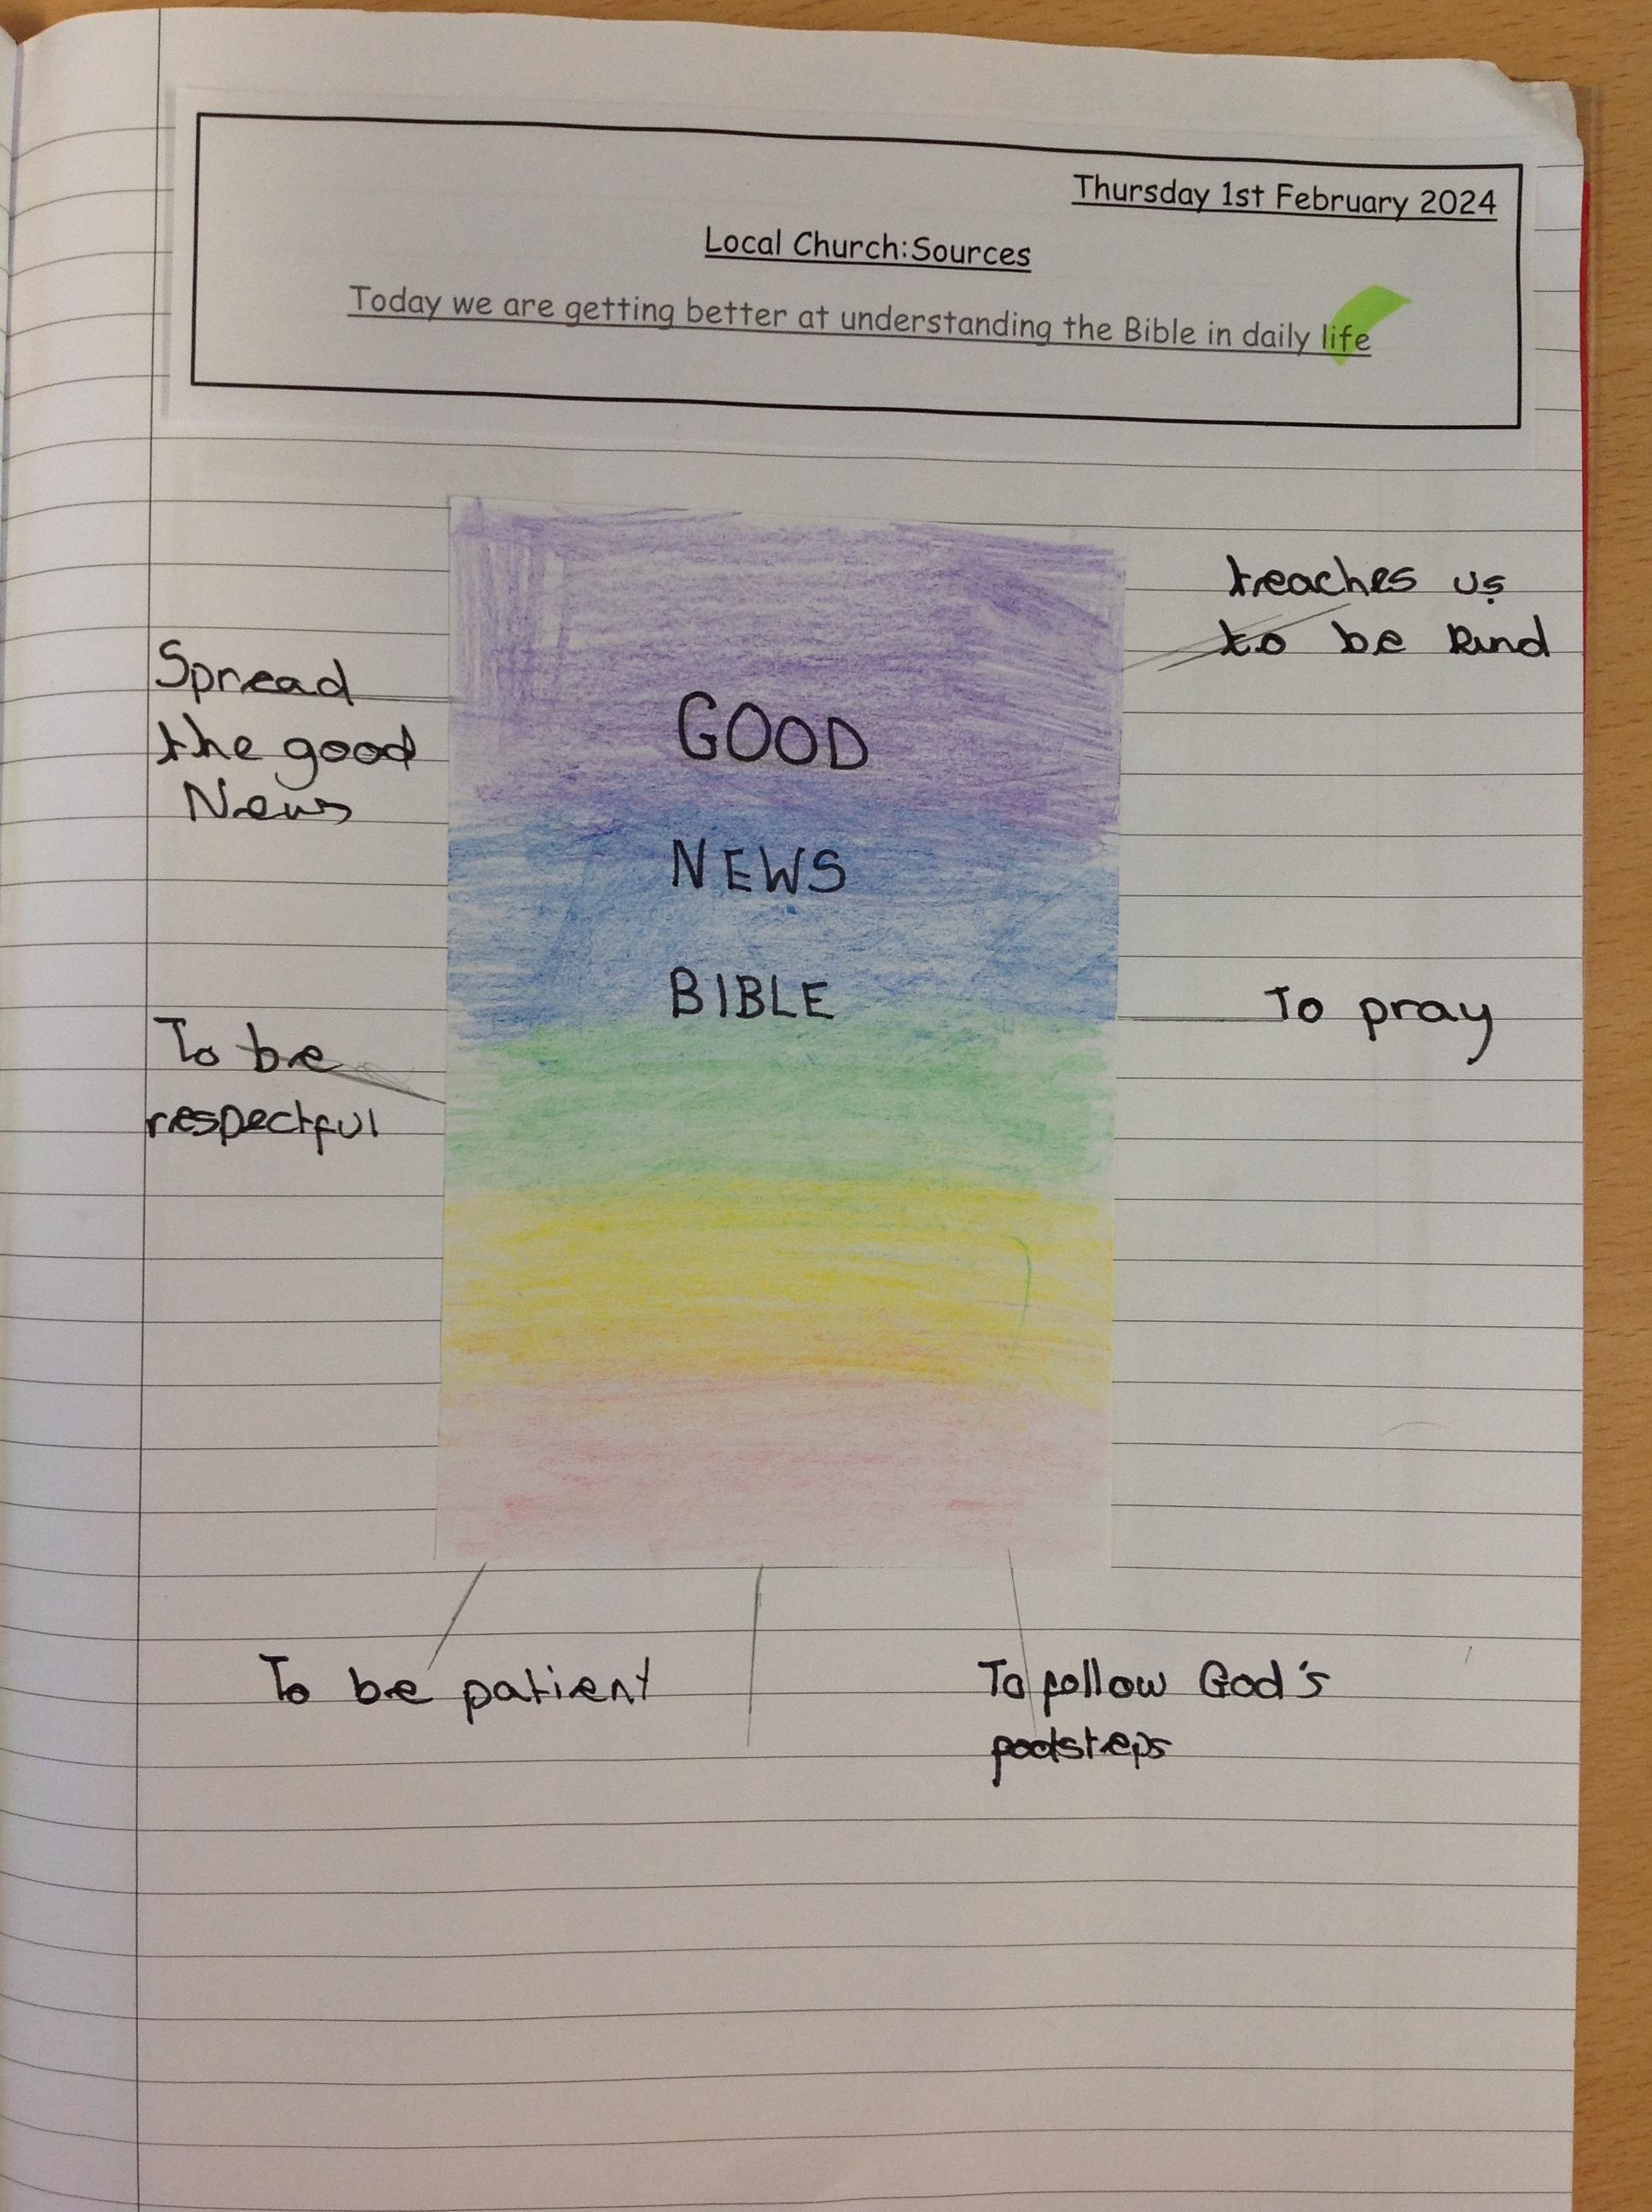 Thursday 1st February 2024
Local Church:Sources
Today we are getting better at understanding the Bible in daily life
teaches us
to be kind
Spread
the good
News
GOOD
NEWS
BIBLE
To pray
To be
respectful
To be patient
To follow God's
footsteps